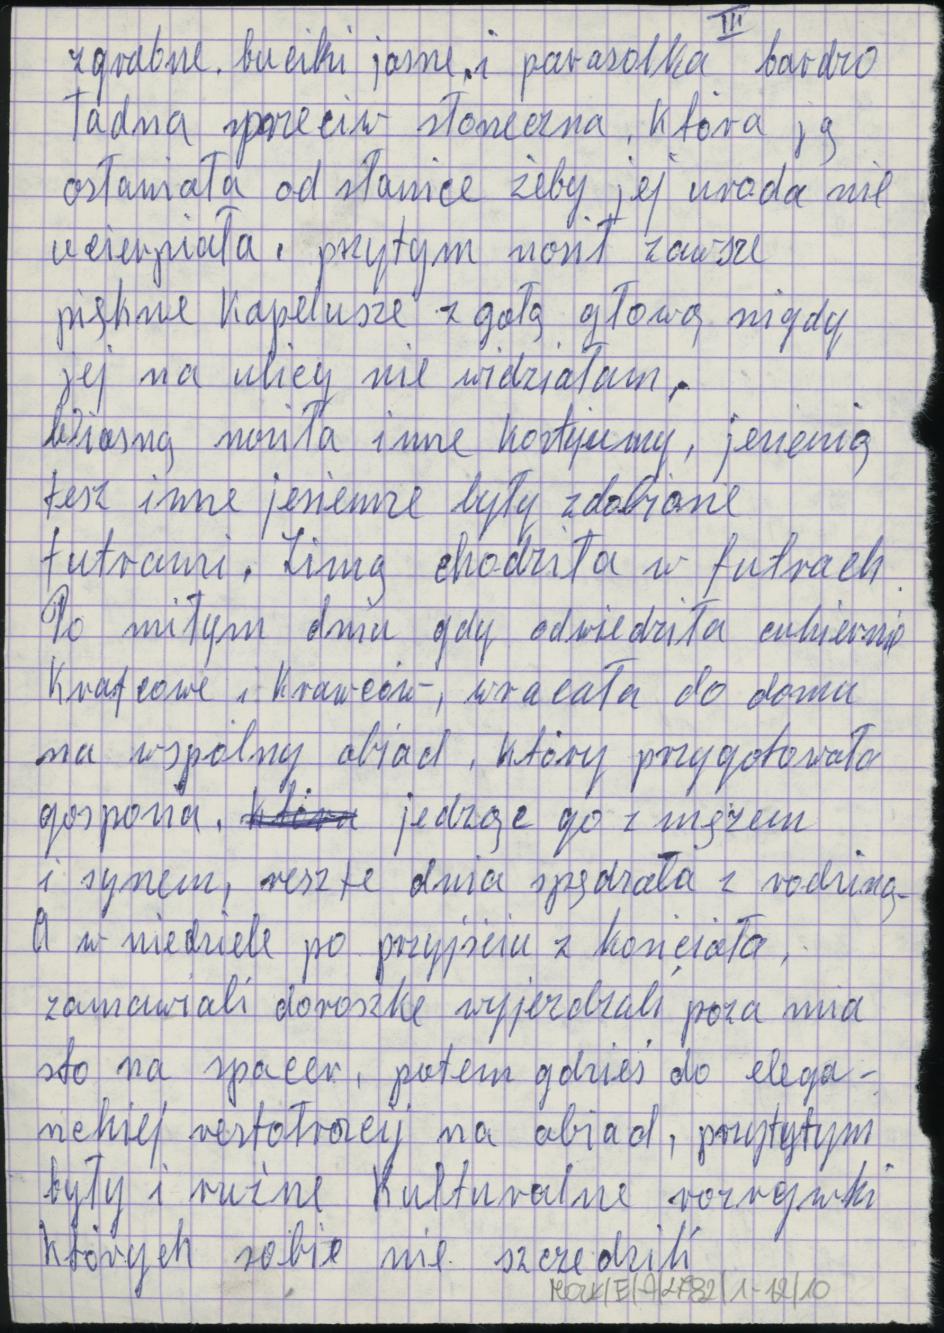 III
zgrabne. buciki jasne, i parasolka bardzo
ładna przeciw słoneczna, która ją
osłaniała od słańce żeby jej uroda nie
ucierpiała, przytym nosił zawsze
piękne kapelusze z gołą głową nigdy
jej na ulicy nie widziałam.
Wiosną nosiła inne kostjumy, jesienią
tesz inne jesienne były zdobione
futrami. Zimą chodziła w futrach.
Po miłym dniu gdy odwiedziła cukiernie
Krafcowe i Krawców, wracała do domu
na wspólny obiad, który przygotowała
gosposia. która jedząc go z mężem
i synem, reszte dnia spędzała z rodziną.
A w niedziele po przyjściu z kościała,
zamawiali doroszke wyjerdzali, poza mia
sto na spacer, potem gdzieś do elega-
nckiej restałracij na obiad, przytytym
były i rużne Kulturalne rozrywki
których sobie nie szczedzili